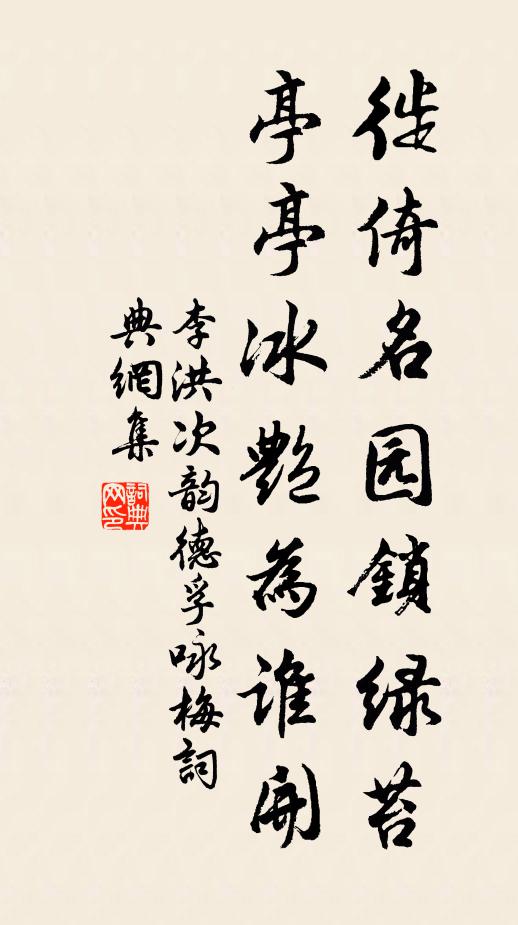 徙倚名园鎖緑苔
亭亭冰艷為誰開
李洪次韵德孚咏梅詞
典網集
詞典
网印